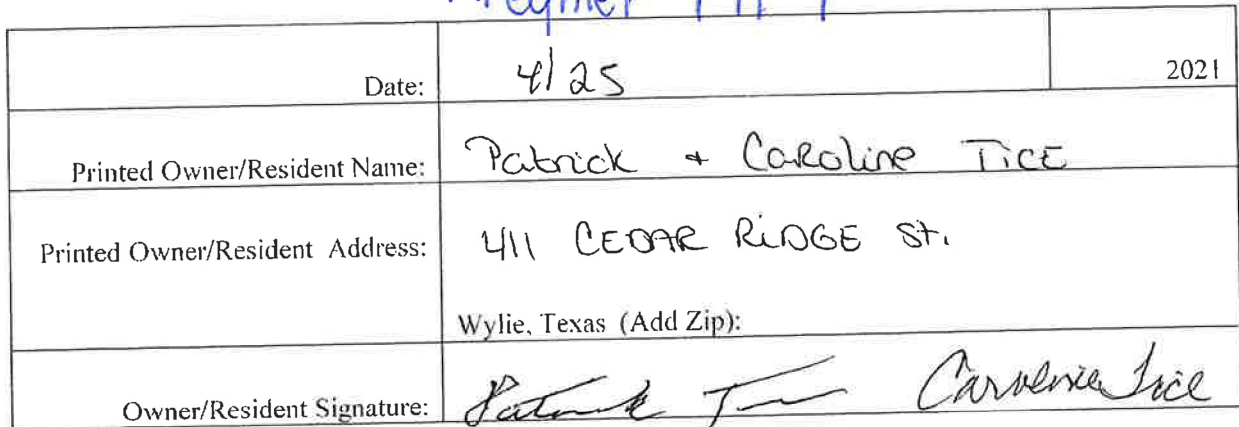 Date: 4/25 2021
Printed Owner/Resident Name: Patrick + Caroline Tice
Printed Owner/Resident Address: 411 CEDAR RIDGE St.
Wylie, Texas (Add Zip):
Owner/Resident Signature: Patrick T Caroline Tice